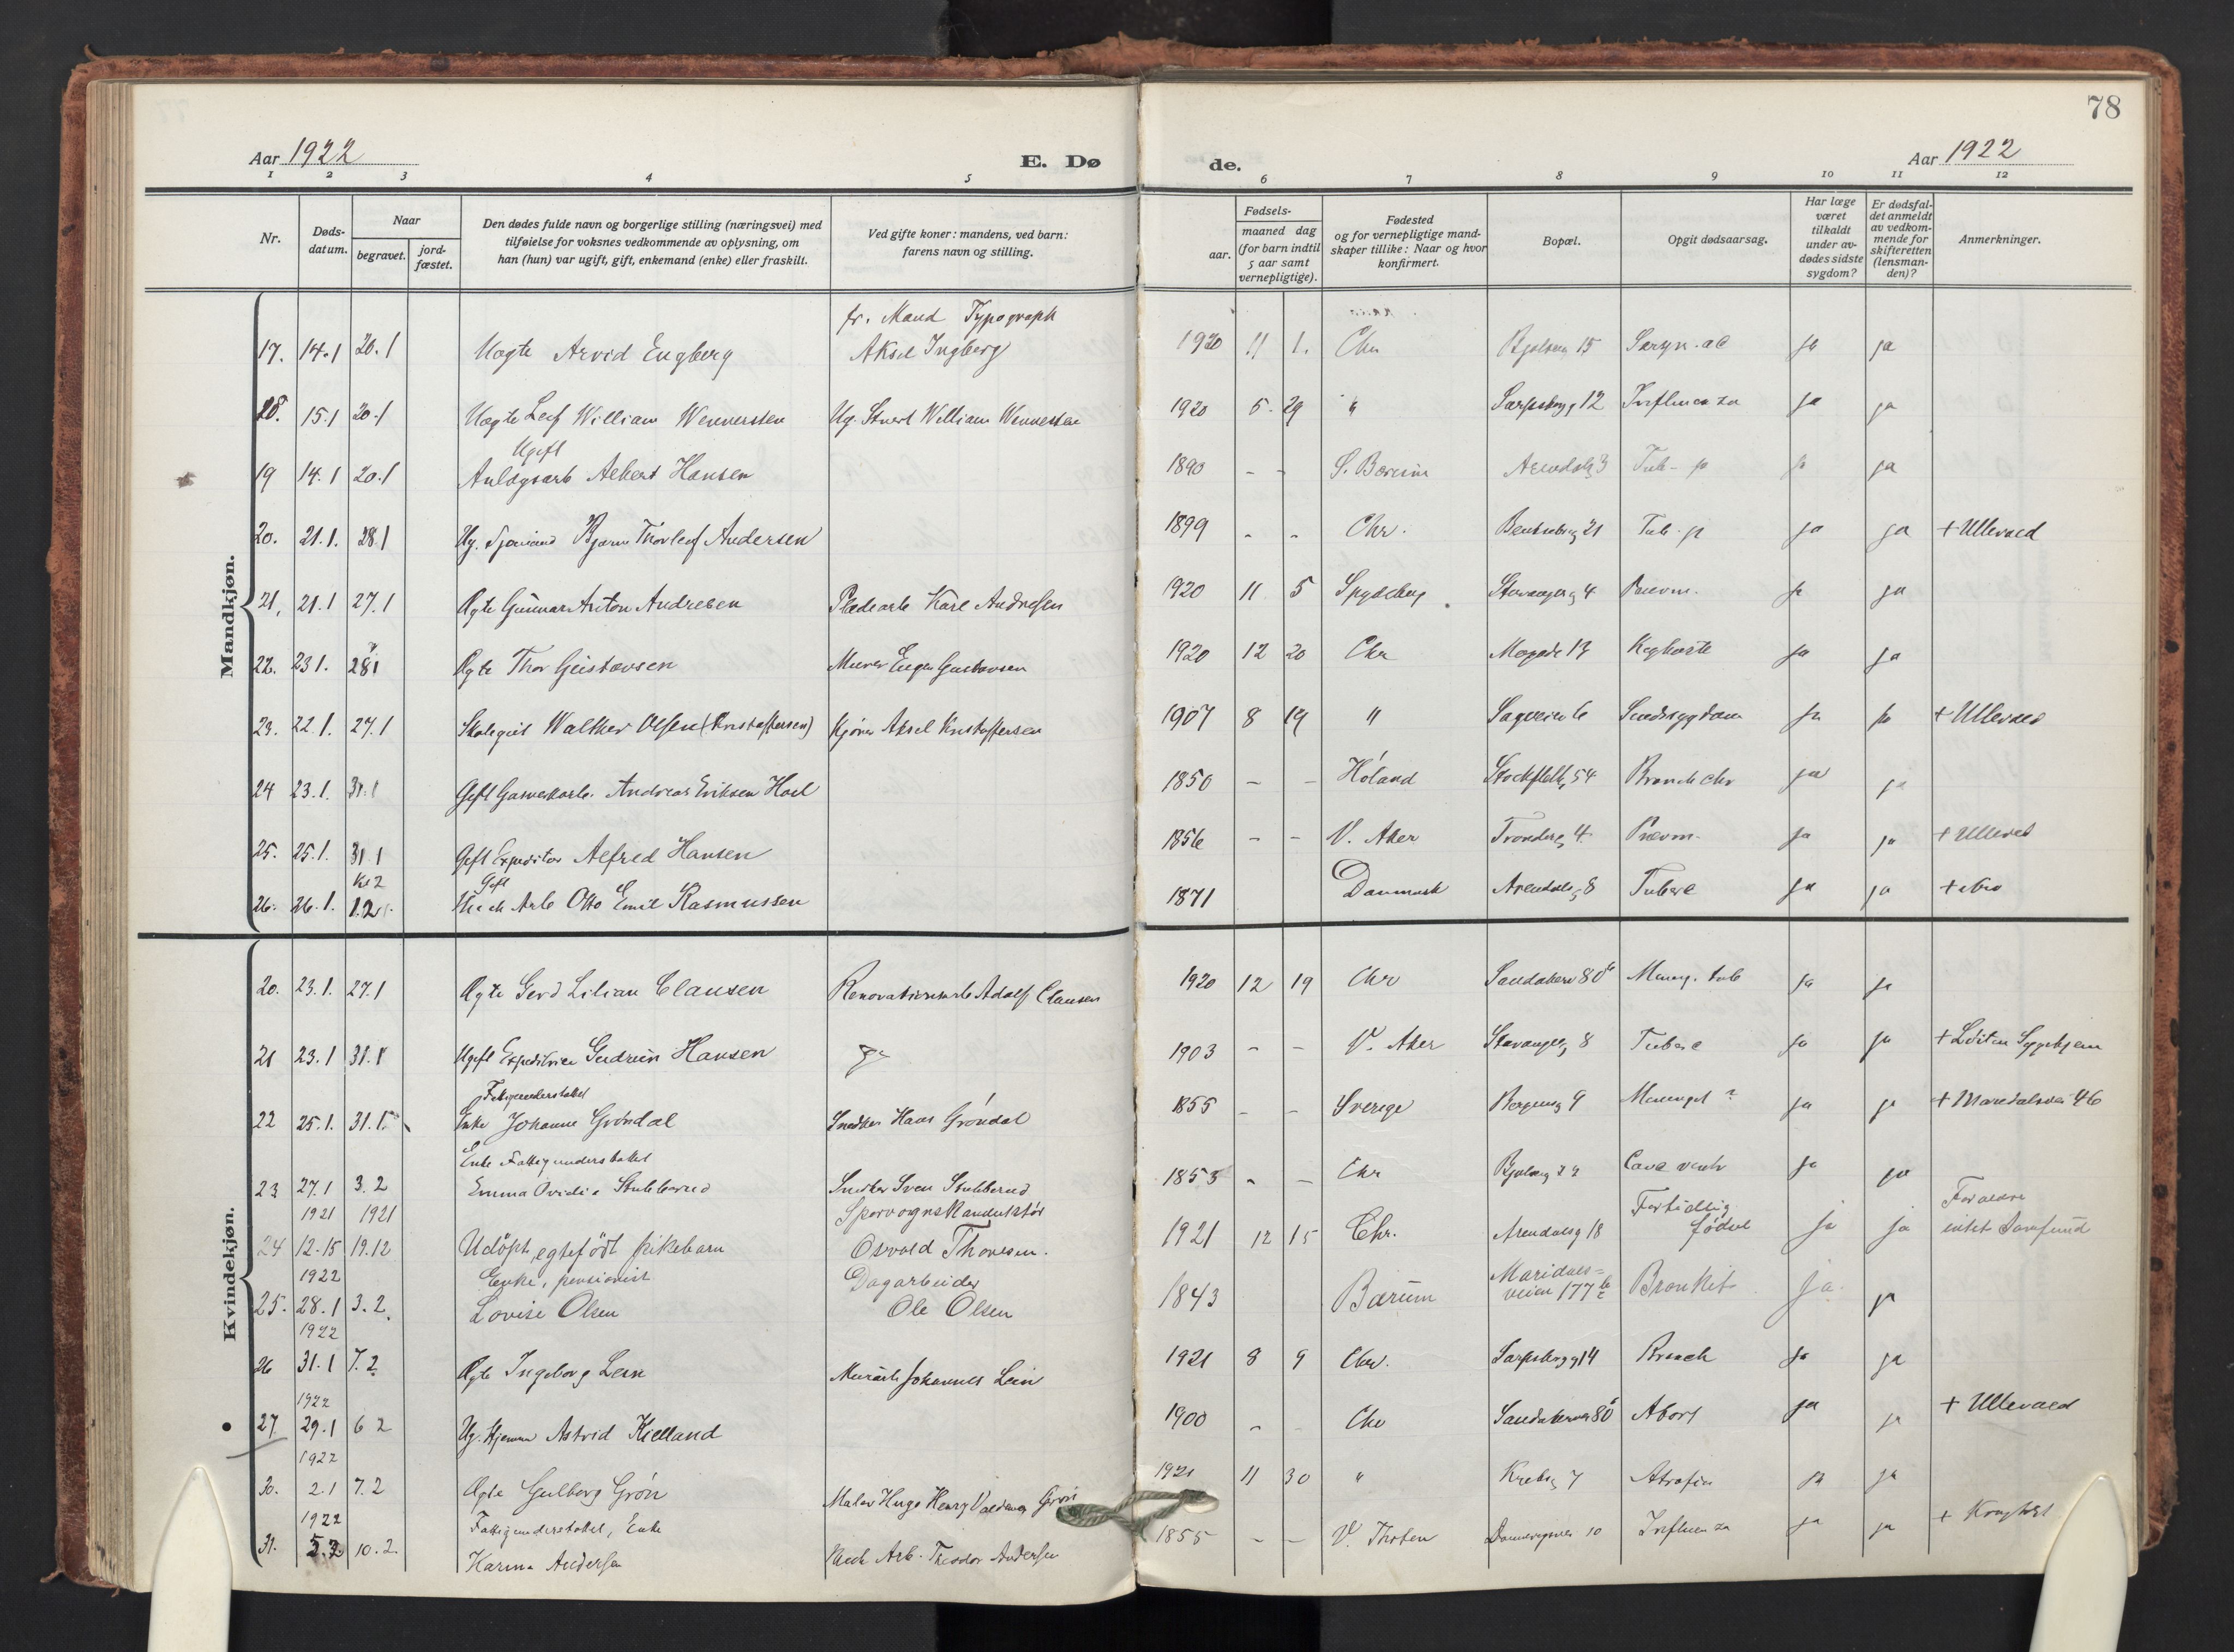 78
Aar 1922
E. Dø
de.
Aar 1922
1 2 3 4 5 6 7 8 9 10 11 12
Nr.
Døds-
datum.
Naar
begravet.
jord-
fæstet.
Den dødes fulde navn og borgerlige stilling (næringsvei) med
tilføielse for voksnes vedkommende av oplysning, om
han (hun) var ugift, gift, enkemand (enke) eller fraskilt.
Ved gifte koner: mandens, ved barn:
farens navn og stilling.
Fødsels-
aar.
maaned dag
(for barn indtil
5 aar samt
vernepligtige).
Fødested
og for vernepligtige mand-
skaper tillike: Naar og hvor
konfirmert.
Bopæl.
Opgit dødsaarsag.
Har læge
været
tilkaldt
under av-
dødes sidste
sygdom?
Er dødsfal-
det anmeldt
av vedkom-
mende for
skifteretten
(lensman-
den)?
Anmerkninger.
Mandkjøn.
fr. Mand Typograph
17. 14.1 20.1 Uegte Arvid Engberg Aksel Ingberg 1920 11 1. Chr 15 ja ja
18. 15.1 20.1 Uegte Leif William Wennersten Ug. William Wennersten 1920 5. 29 " Sarpsborgg 12 Influenza ja ja
Ugift
19 14.1 20.1 Anlægsarb Albert Hansen 1890 - - S. Bærum Arendalsg 3 Tub. p ja ja
20. 21.1. 28.1 Ug. Sjømand Bjarne Thorleif Andersen 1899 - - Chr. 21 Tub. p ja ja + Ullevaal
21, 21.1 27.1 Ægte Gunnar Anton Andresen Pladearb Karl Andresen 1920 11 5 Spydeberg Stavangerg 4 Pnevm. ja ja
22. 23 1. 28.1 Ægte Thor Gustavsen Murer Eugen Gustavsen 1920 12 20 Chr 13 Kighoste ja ja
23. 22.1. 27.1 Skolegut Walther Olsen (Kristoffersen) Kjører Aksel Kristoffersen 1907 8 19 " Sagveien 6 ja ja + Ullevaal
24 23.1. 31.1 Gift Gasverksarb. Andreas Eriksen Hoel 1850 - - Høland Stockfletsg 54 Bronch chr ja ja
25. 25.1. 31.1 Gift Expeditør Alfred Hansen 1856 - - V. Aker Tronderg 4 Pnevm. ja ja + Ullevål
Kl 2 Gift
26. 26.1. 1.2. Mech Arb Otto Emil Rasmussen 1871 Danmark Arendalsg 8 Tuberc ja ja
Kvindekjøn.
20. 23.1. 27.1 Ægte Gerd Lilian Clausen Renovationsarb Adolf Clausen 1920 12 19 Chr Sandakerv 80 b Mening. tub ja ja
21 23.1 31.1 Ugift Expeditrice Gudrun Hansen 1903 - - V. Aker Stavangerg 8 Tuberc ja ja + Sygehjem
Fattigunderstøttet
22 25.1. 31.1. Enke Johanne Grøndal Snedker Hans Grøndal 1855 - - Sverige Bergensg 9 ja ja + Maridalsvei 46
Enke Fattigunderstøttet
23 27.1 3.2 Emma Ovidia Stubberud Snedker Sven Stubberud 1853 - - Chr Canc ventr ja ja
1921 1921 Sporvognskonduktør Fortidlig Forældre
24 12-15 19.12 Udøpt, egtefødt pikebarn Osvald Thoresen. 1921 12 15 Chr. Arendalsg 18 fødsel ja ja intet Samfund
1922 Enke, pensionist Dagarbeider Maridals-
25. 28.1 3.2. Lovise Olsen Ole Olsen 1843 Bærum veien 177 Bronkit ja ja
1922
26 31.1 7.2 Ægte Ingeborg Lein Murarb Johannes Lein 1921 8 9 Chr. Sarpsborgg 14 Bronch ja ja
1922
27. 29.1 6 2 Ug. Hjemme Astrid Kielland 1900 - Chr Sandakerveien 80 b Abort ja ja + Ullevaal
1922
30. 2.1 7.2 Ægte Gulborg Grøn Maler Hugo Henry Valdemar Grøn 1921 11 30 " Krebsg 7 Atrofia ja ja
1922 Fattigunderstøttet, Enke
31. 5.2 10.2. Karina Andersen Mech Arb. Theodor Andersen 1855 - - V. Thoten Dannevigsveien 10 Influenza ja ja